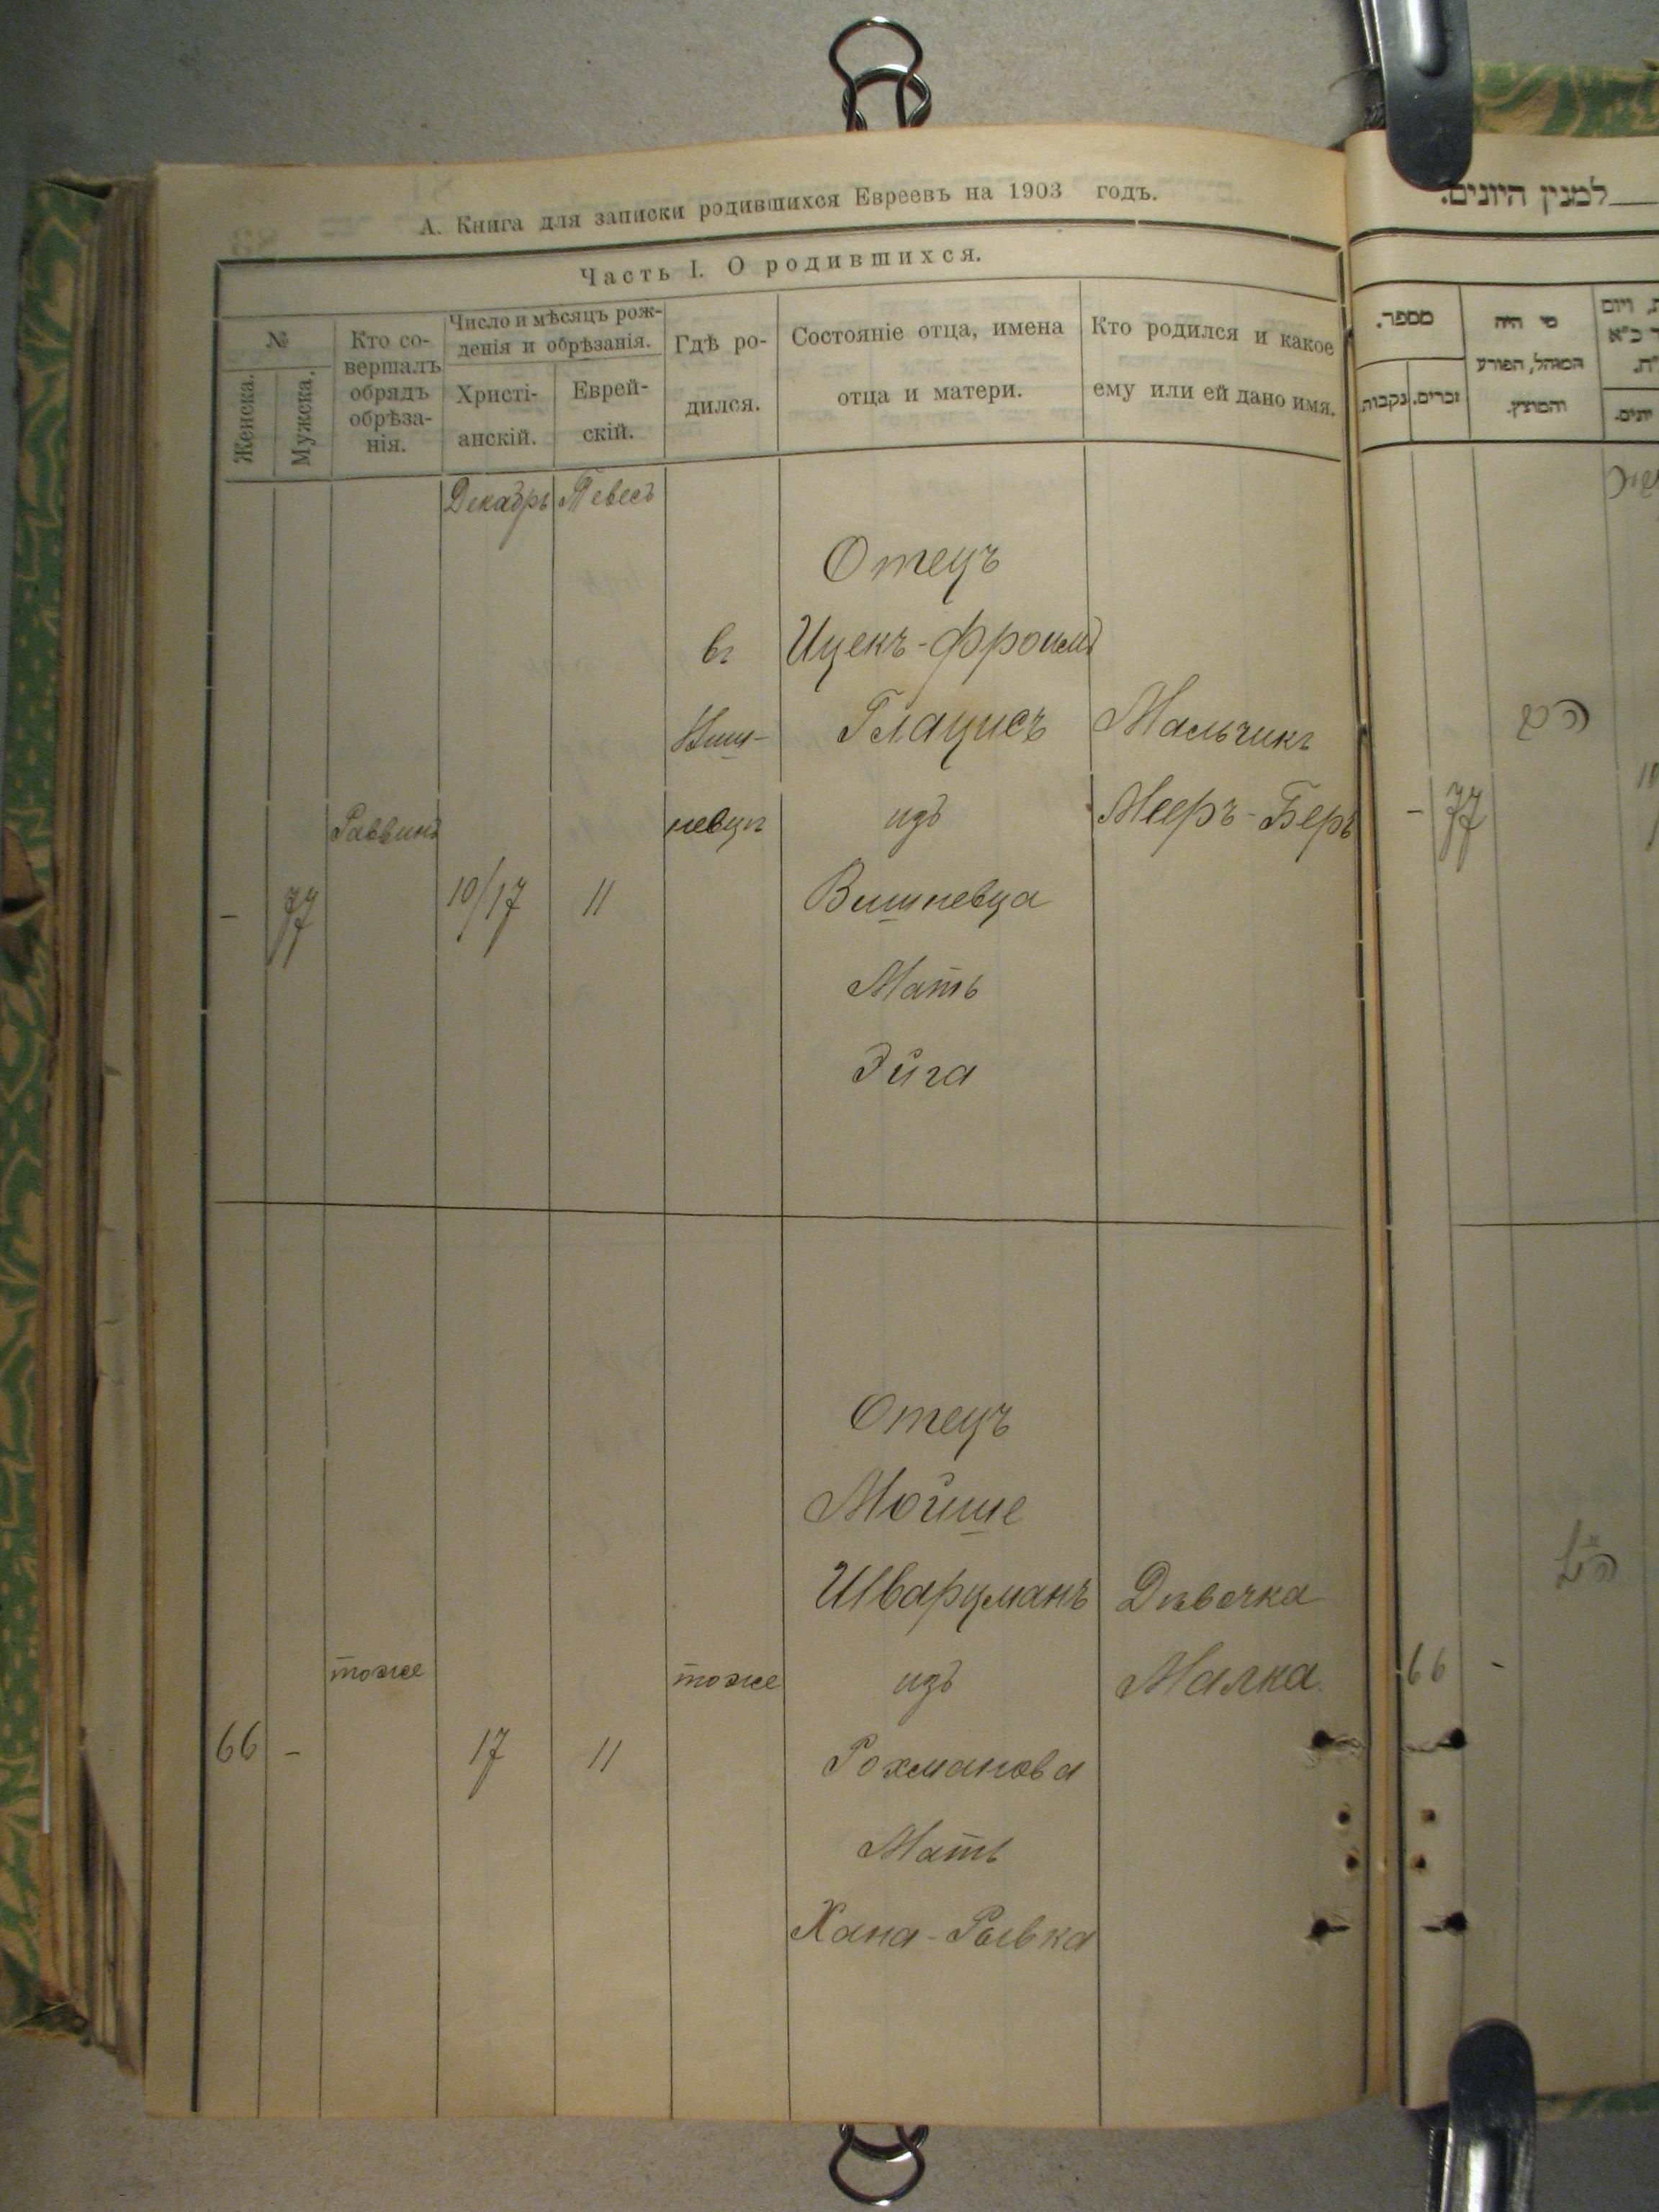 А. Книга для записки родившихся Евреевъ на 1903 годъ.
למנין היונים.
Часть I. О родившихся.
№
Женска.
Мужска.
Кто со-
вершалъ
обрядъ
обрѣза-
нія.
Число и мѣсяцъ рож-
денія и обрѣзанія.
Христі-
анскій.
Еврей-
скій.
Гдѣ ро-
дился.
Состояніе отца, имена
отца и матери.
Кто родился и какое
ему или ей дано имя.
מספר.
נקבות.
זכרים.
מי היה
המוהל, הפורע
והמוצץ.
Декабрь
Тевесъ
Отецъ
въ
Ицекъ-Фроимъ
Глацисъ
Мальчикъ
Раввинъ
невцъ
изъ
Мееръ-Беръ
- 77
- 77
10/17
11
Вишневца
Мать
Эйга
Отецъ
Мойше
Шварцманъ
Дѣвочка
тоже
тоже
изъ
Малка.
66 -
66 -
17
11
Рохманова
Мать
Хана-Рывка